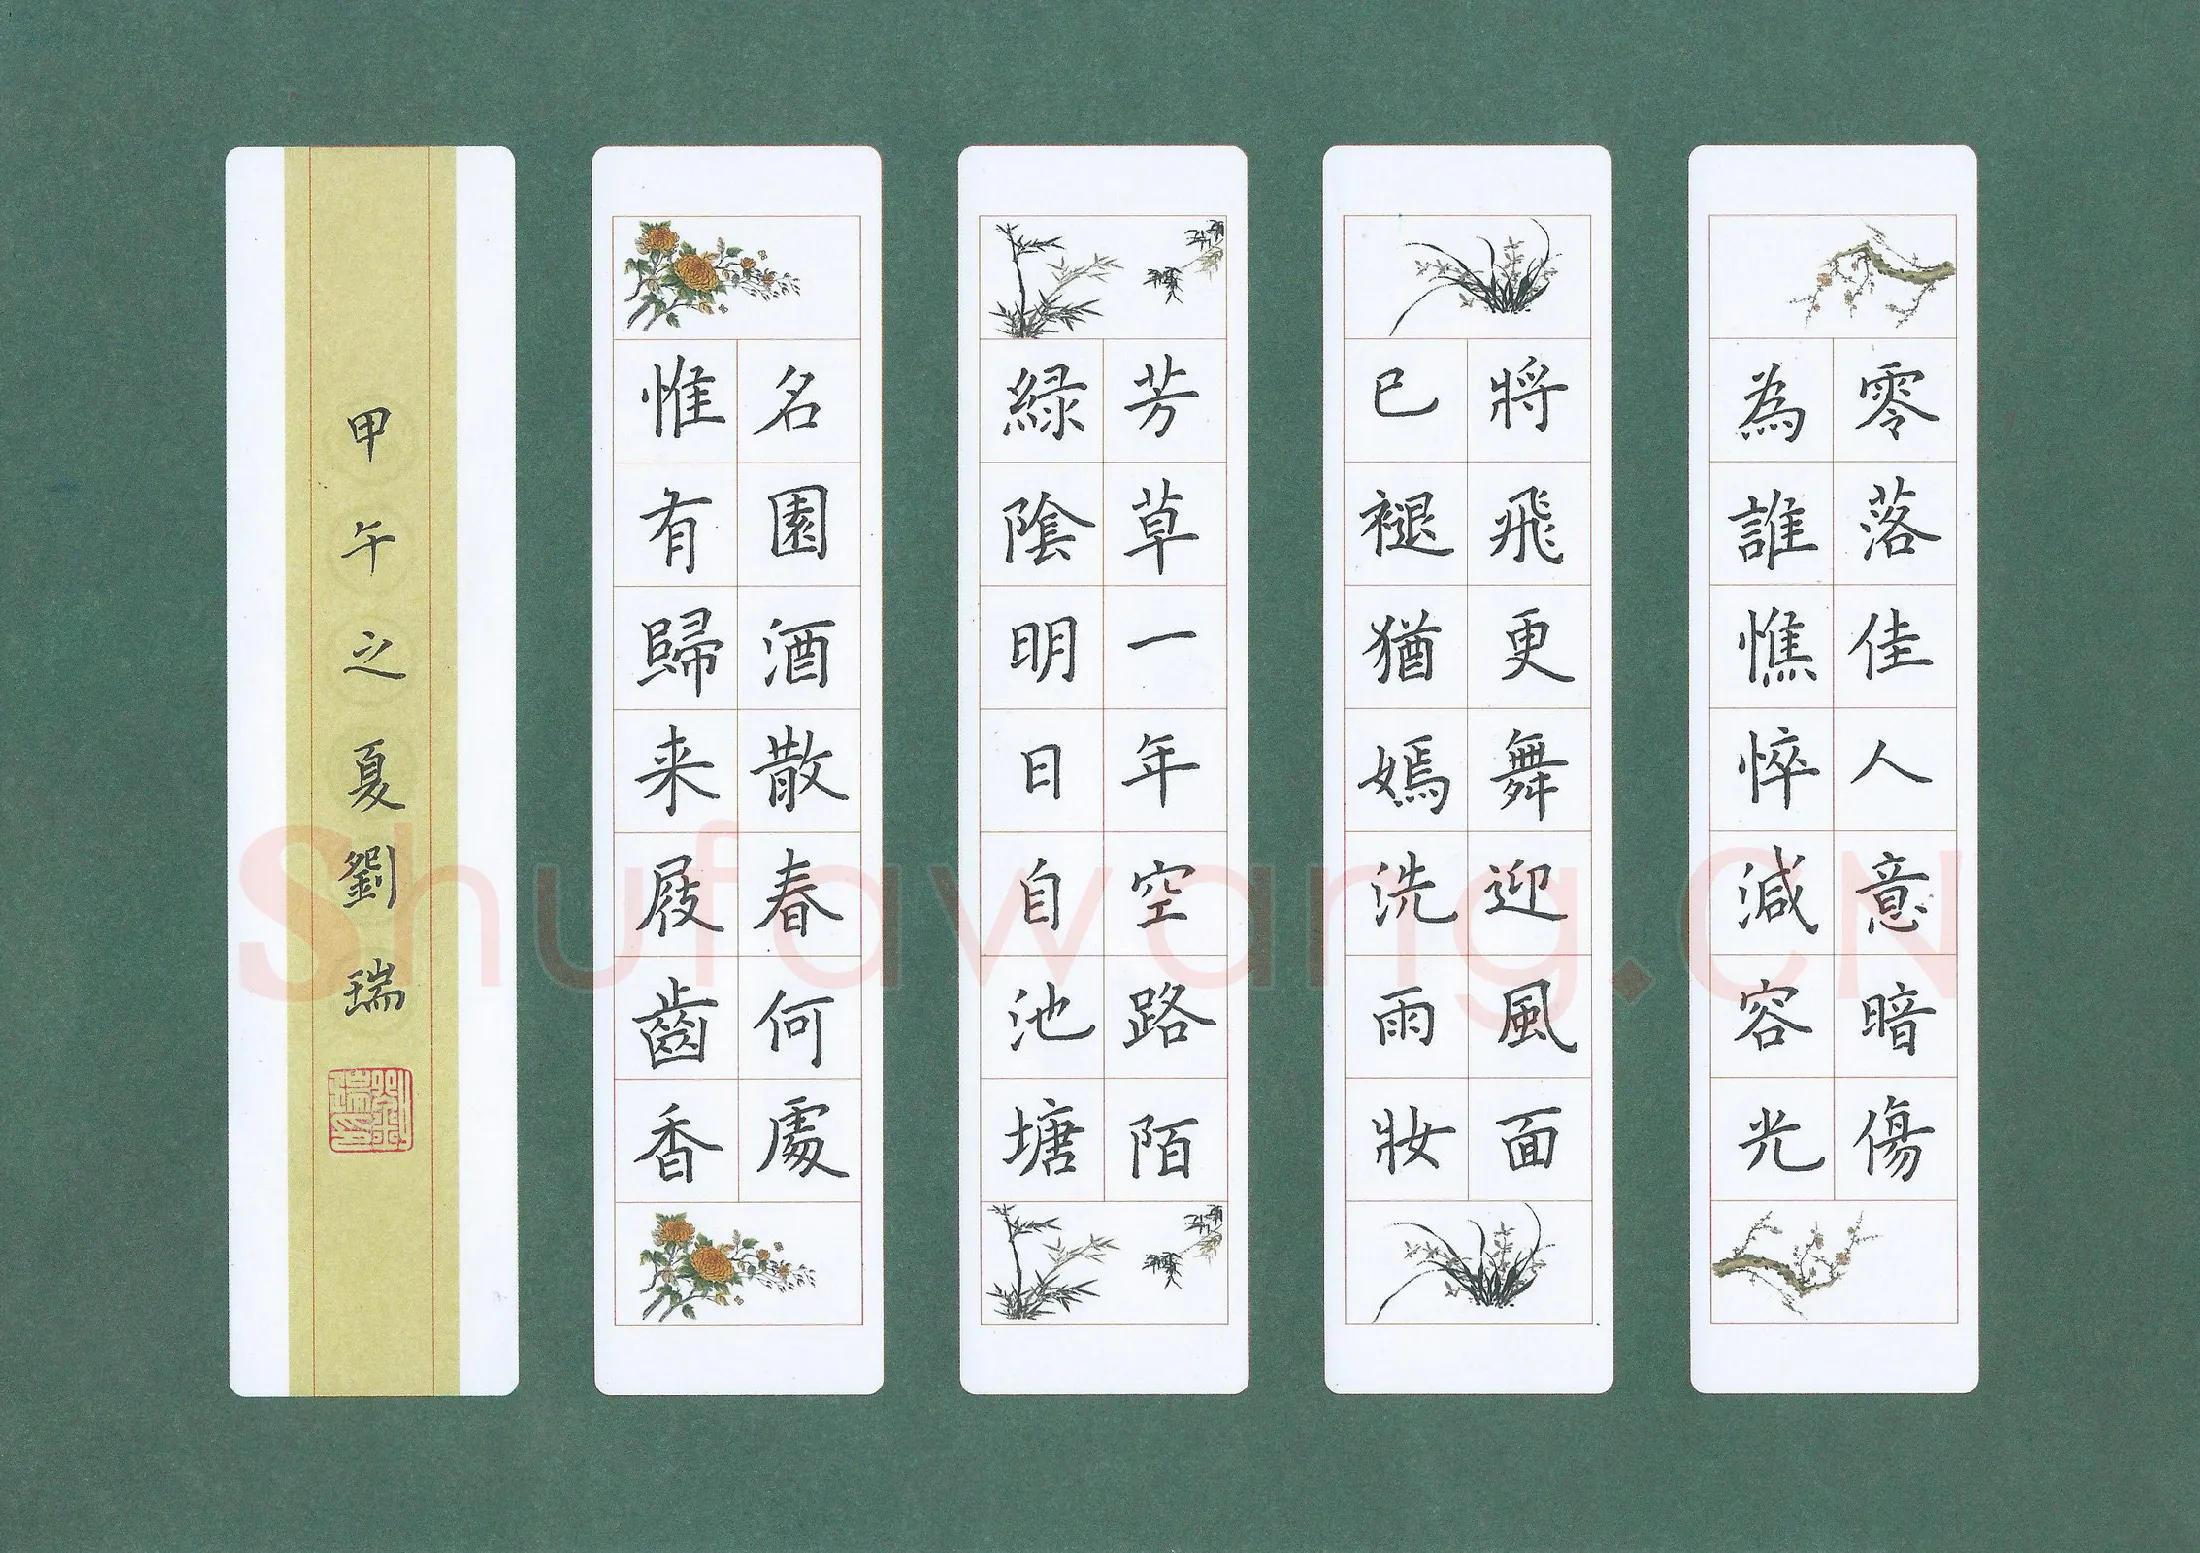 零落佳人意暗傷
為誰憔悴減容光
將飛更舞迎風面
已褪猶嫣洗雨妝
芳草一年空路陌
綠陰明日自池塘
名園酒散春何處
惟有歸来屐齒香
甲午之夏劉瑞
劉瑞印
Shufawang.CN